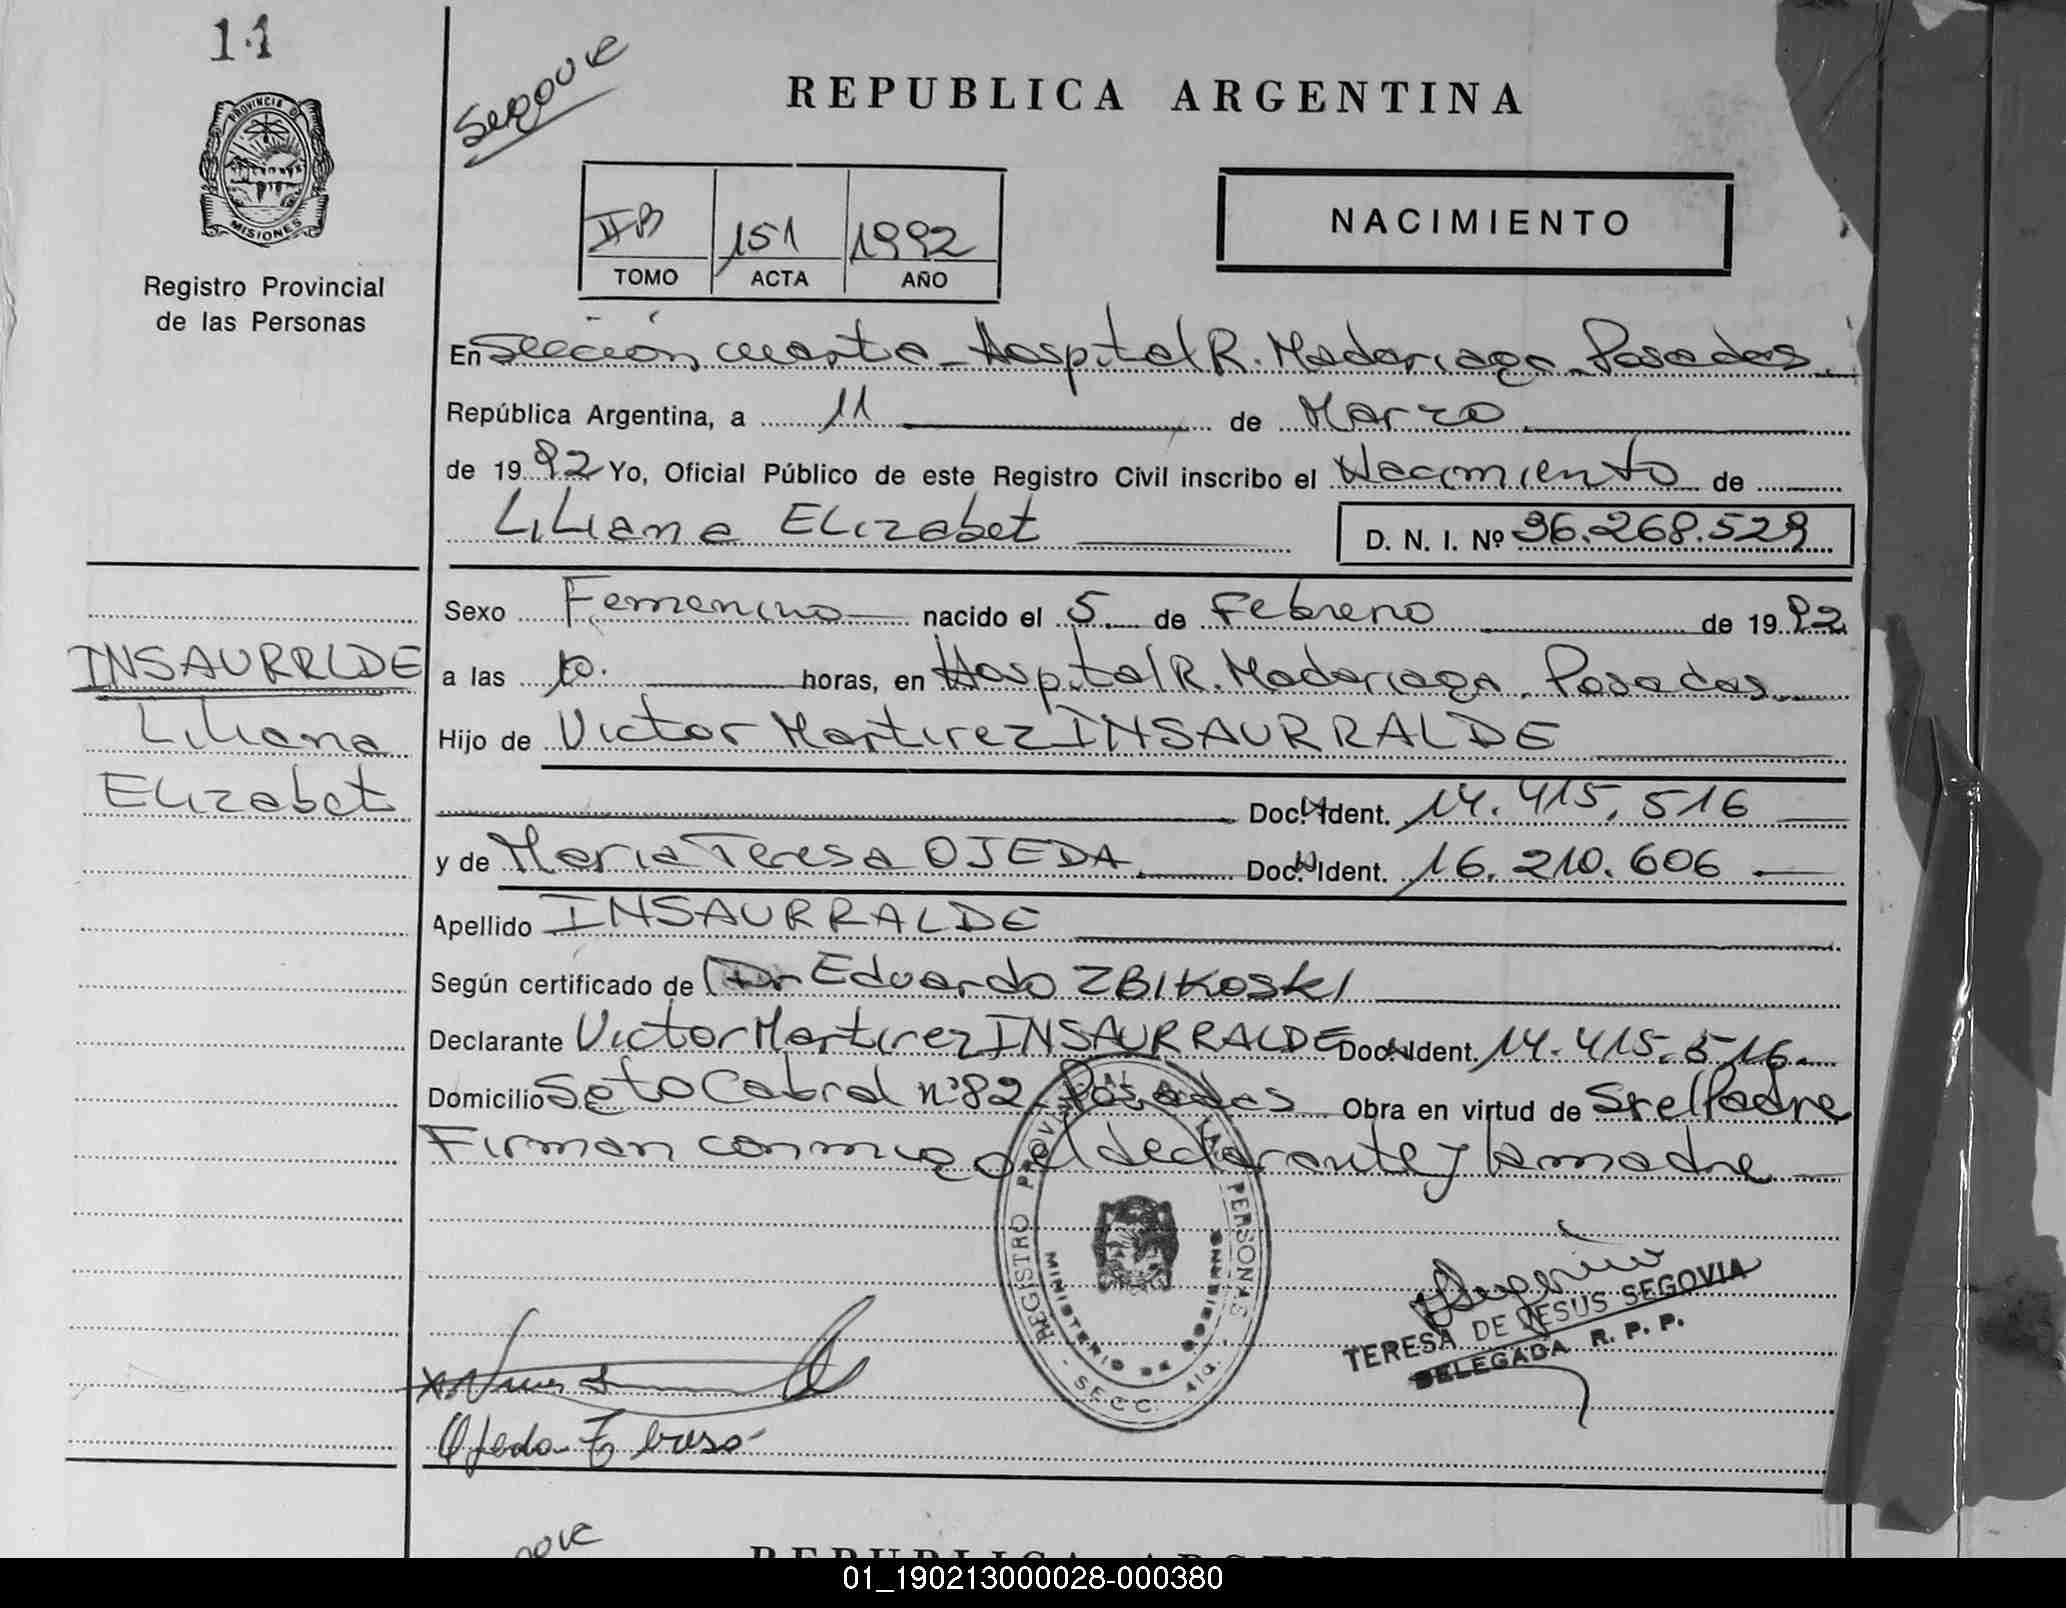 11
PROVINCIA DE
MISIONES
Registro Provincial
de las Personas
Segove
REPUBLICA ARGENTINA
IIB 151 1992
TOMO ACTA AÑO
NACIMIENTO
En Sección cuarta - Hospital R. Madariaga - Posadas
República Argentina, a 11 de Marzo
de 1992 Yo, Oficial Público de este Registro Civil inscribo el Nacimiento de
Liliana Elizabet D. N. I. Nº 36.268.529
Sexo Femenino nacido el 5 de Febrero de 1992
a las 10. horas, en Hospital R. Madariaga. Posadas
INSAURRLDE
Liliana
Elizabet
Hijo de Victor Martirez INSAURRALDE
Doc. Ident. 14.415.516
y de Maria Teresa OJEDA Doc. Ident. 16.210.606
Apellido INSAURRALDE
Según certificado de Dr Eduardo ZBIKOSKI
Declarante Victor Martirez INSAURRALDE Doc. Ident. 14.415.516
Domicilio Sgto Cabral nº 82 - Posadas Obra en virtud de Ser el Padre
Firman conmigo el declarante y la madre
REGISTRO PROVINCIAL DE LAS PERSONAS
MINISTERIO DE GOBIERNO
SECC. 4ta.
TERESA DE JESUS SEGOVIA
DELEGADA R. P. P.
Ojeda Teresa
REPUBLICA ARGENT
01_190213000028-000380